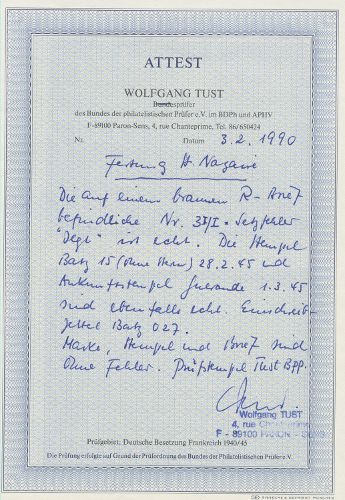 ATTEST
WOLFGANG TUST
Bundesprüfer
des Bundes der philatelistischen Prüfer e.V. im BDPh und APHV
F-89100 Paron-Sens, 4, rue Chanteprime, Tel. 86/650424
Nr. Datum 3.2.1990
Festung St. Nazaire
Die auf einem braunen R-Brief
befindliche Nr. Setzfehler
ist echt. Die Stempel
Batz 15 (ohne Stern) 28.2.45 und
Ankunftsstempel Guerande 1.3.45
sind ebenfalls echt. Einschreib-
zettel Batz 027.
Marke, Stempel und Brief sind
ohne Fehler. Prüfstempel Tust BPP.
Wolfgang TUST
4, rue Chanteprime
F - 89100 PARON - SENS
Prüfgebiet: Deutsche Besetzung Frankreich 1940/45
Die Prüfung erfolgte auf Grund der Prüfordnung des Bundes der Philatelistischen Prüfer e.V.